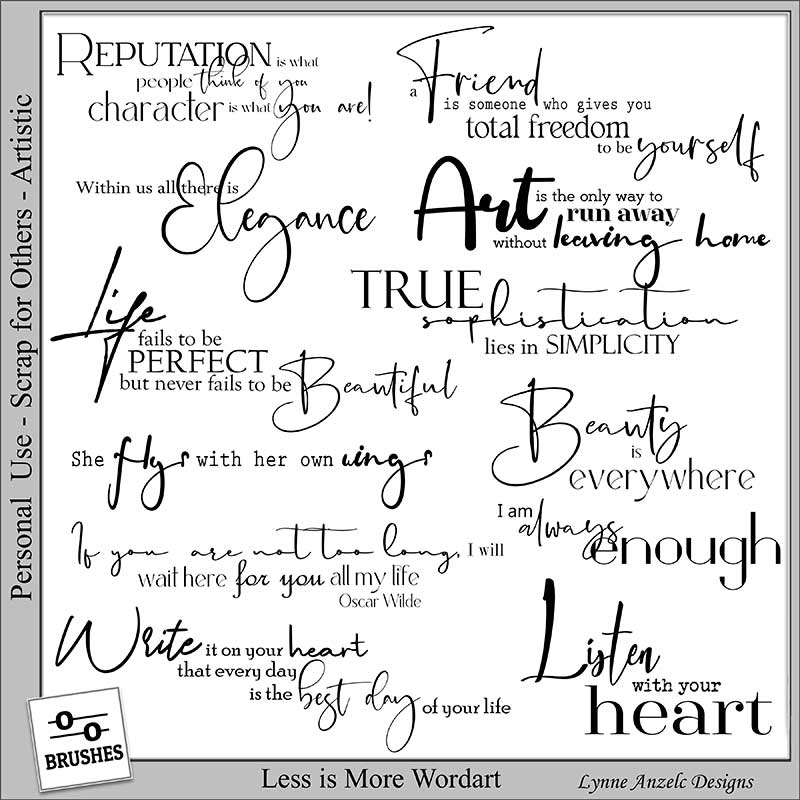 REPUTATION is what
people think of you
character is what you are!
a Friend
is someone who gives you
total freedom
to be yourself
Within us all there is
Elegance
Art is the only way to
run away
without leaving home
Life
fails to be
PERFECT
but never fails to be Beautiful
TRUE
sophistication
lies in SIMPLICITY
She flys with her own wings
Beauty
is
everywhere
I am always
enough
If you are not too long, I will
wait here for you all my life
Oscar Wilde
Write it on your heart
that every day
is the best day of your life
Listen
with your
heart
Personal Use - Scrap for Others - Artistic
BRUSHES
Less is More Wordart
Lynne Anzelc Designs